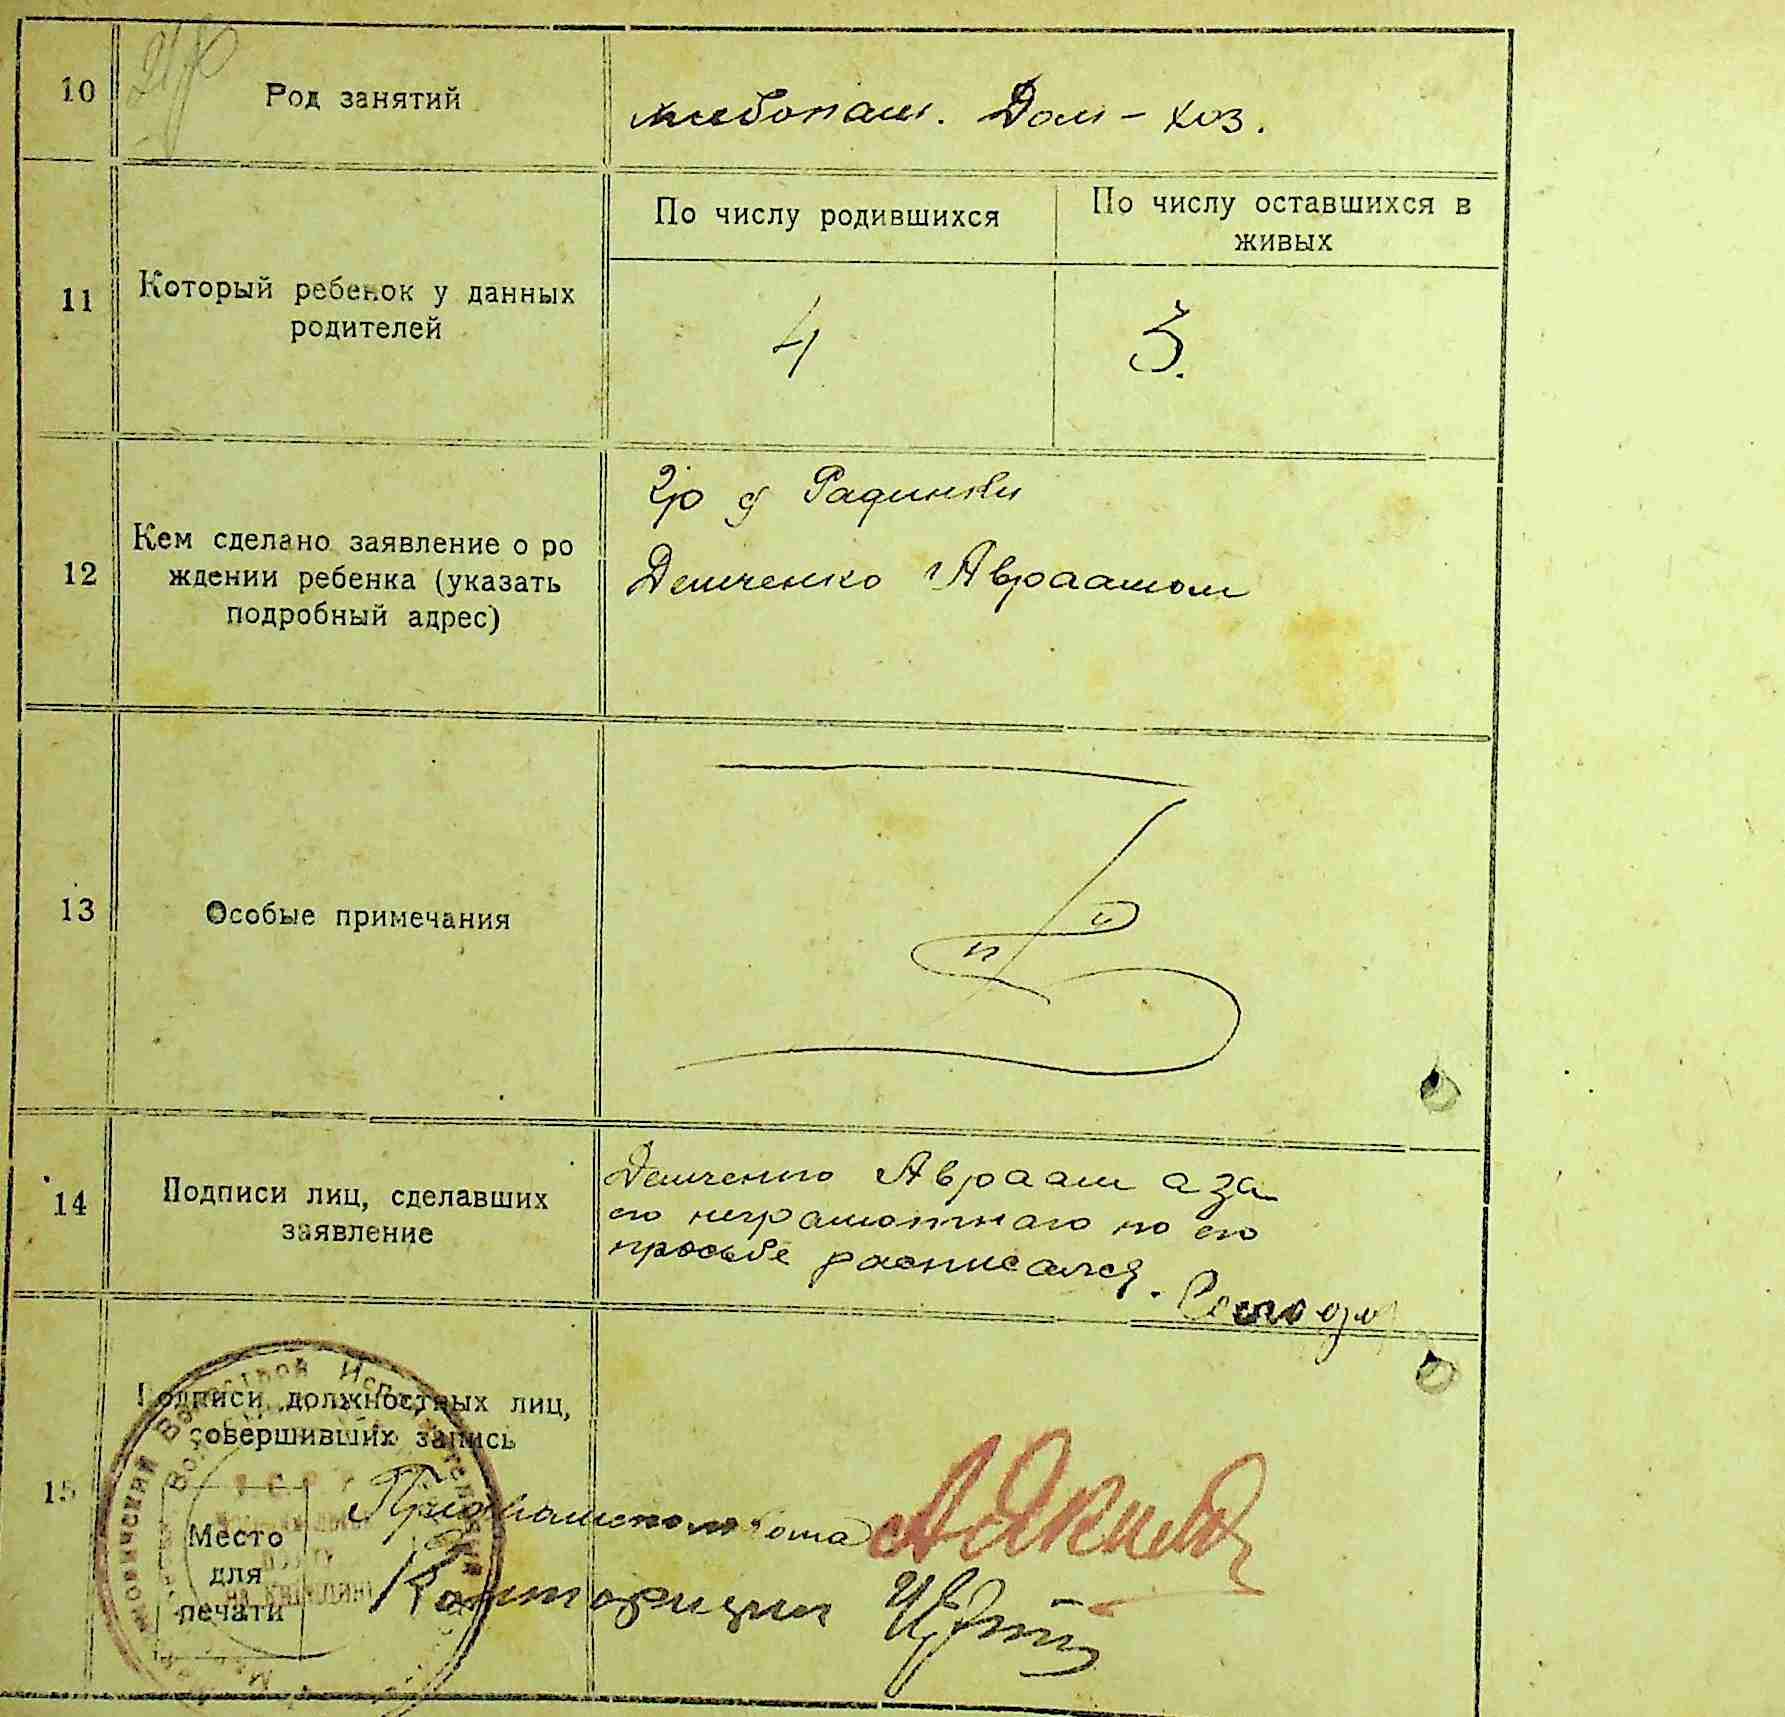 10
Род занятий
хлебопаш. Дом - хоз.
11
Который ребенок у данных
родителей
По числу родившихся
По числу оставшихся в
живых
4
3.
12
Кем сделано заявление о ро
ждении ребенка (указать
подробный адрес)
гр д Радинки
Демченко Авраамом
13
Особые примечания
14
Подписи лиц, сделавших
заявление
Демченко Авраам а за
его неграмотнаго по его
просьбе расписался.
15
Подписи должностных лиц,
совершивших запись
Место
для
печати